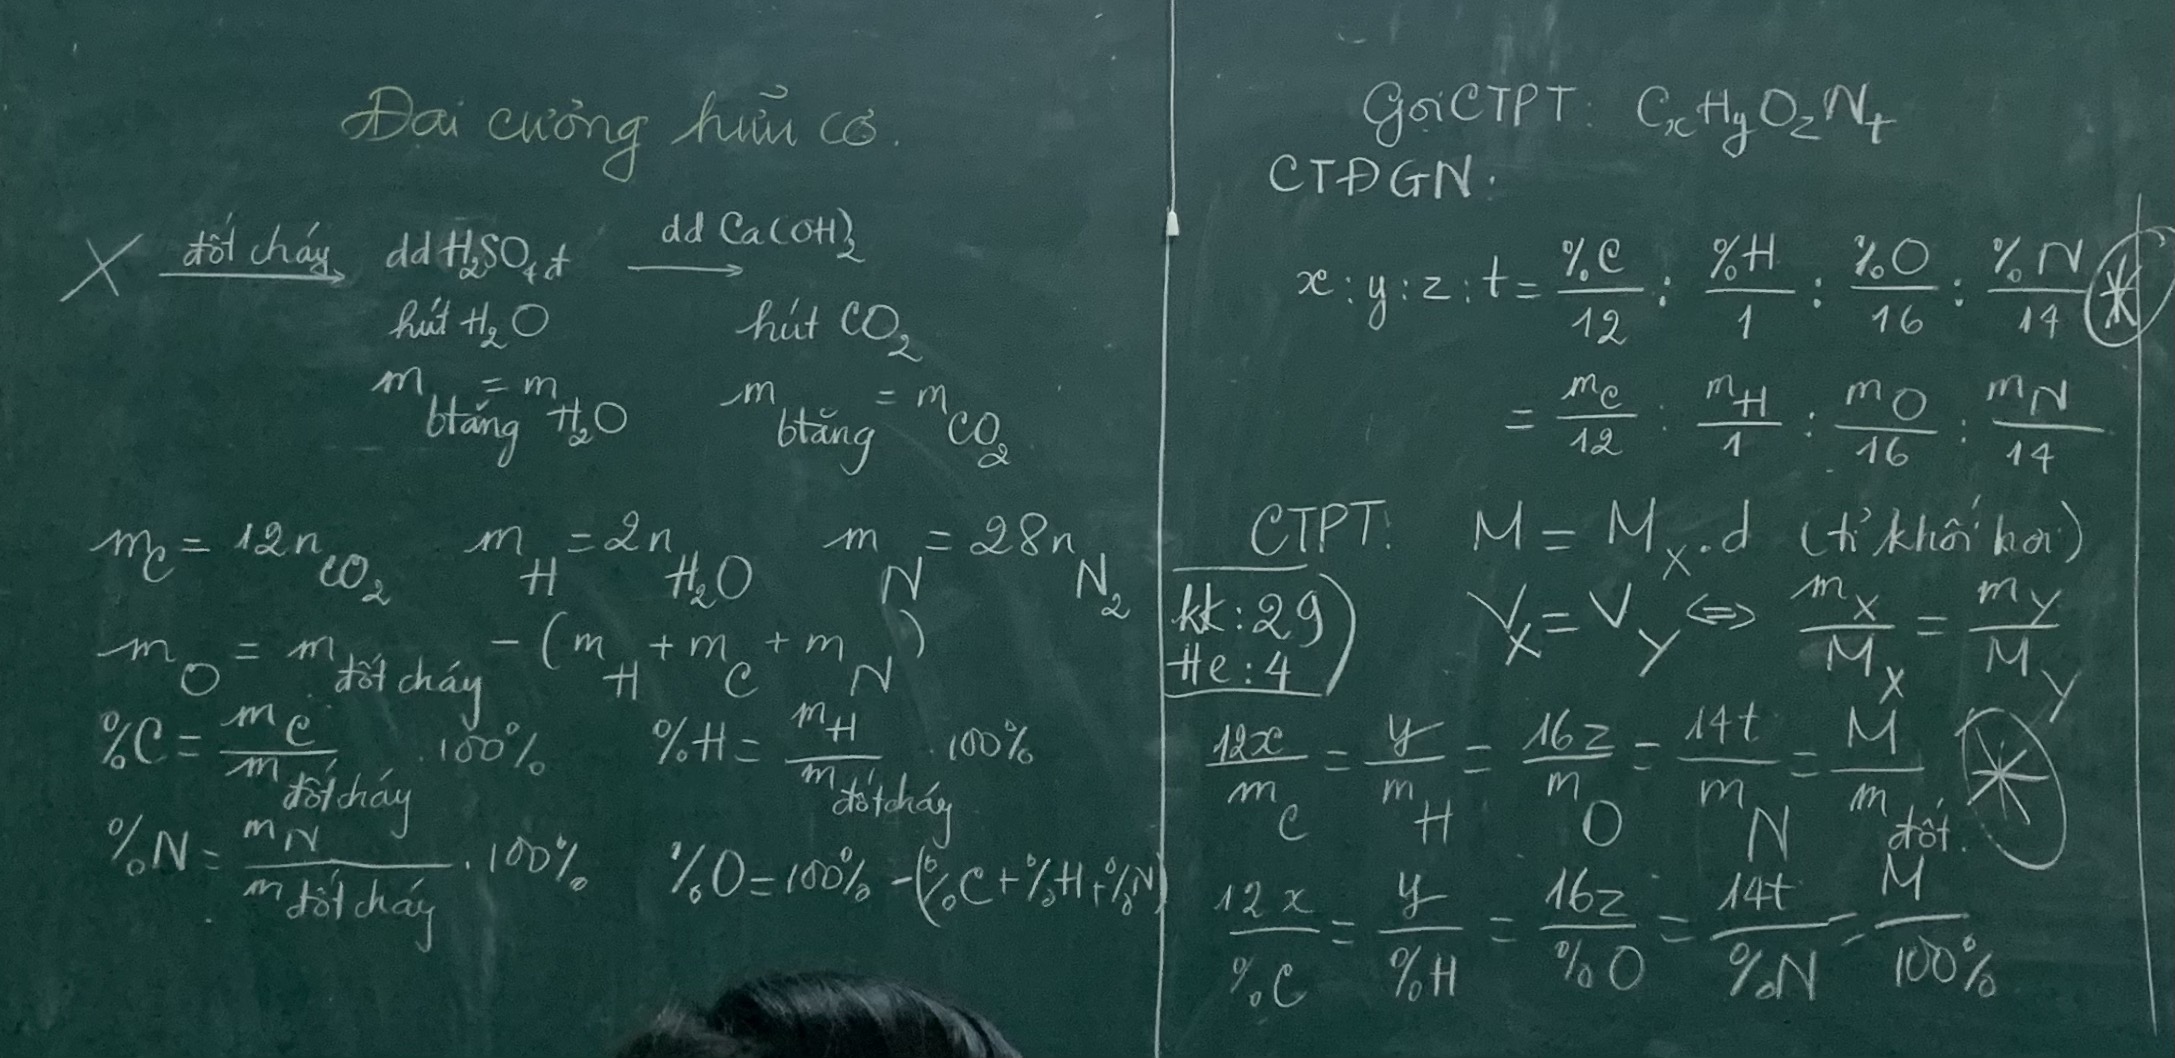 Đại cương hữu cơ.
X đốt cháy → dd H₂SO₄đ → dd Ca(OH)₂
hút H₂O hút CO₂
m btăng = m H₂O m btăng = m CO₂
m C = 12n CO₂ m H = 2n H₂O m N = 28n N₂
m O = m đốt cháy - (m H + m C + m N)
%C = m C / m đốt cháy . 100% %H = m H / m đốt cháy . 100%
%N = m N / m đốt cháy . 100% %O = 100% - (%C + %H + %N)
Gọi CTPT: CₓHᵧO_zN_t
CTĐGN:
x : y : z : t = %C/12 : %H/1 : %O/16 : %N/14 *
= m C/12 : m H/1 : m O/16 : m N/14
CTPT: M = M X . d (tỉ khối hơi)
kk: 29
He: 4
V X = V Y ⇔ m X / M X = m Y / M Y
12x / m C = y / m H = 16z / m O = 14t / m N = M / m đốt. *
12x / %C = y / %H = 16z / %O = 14t / %N = M / 100%